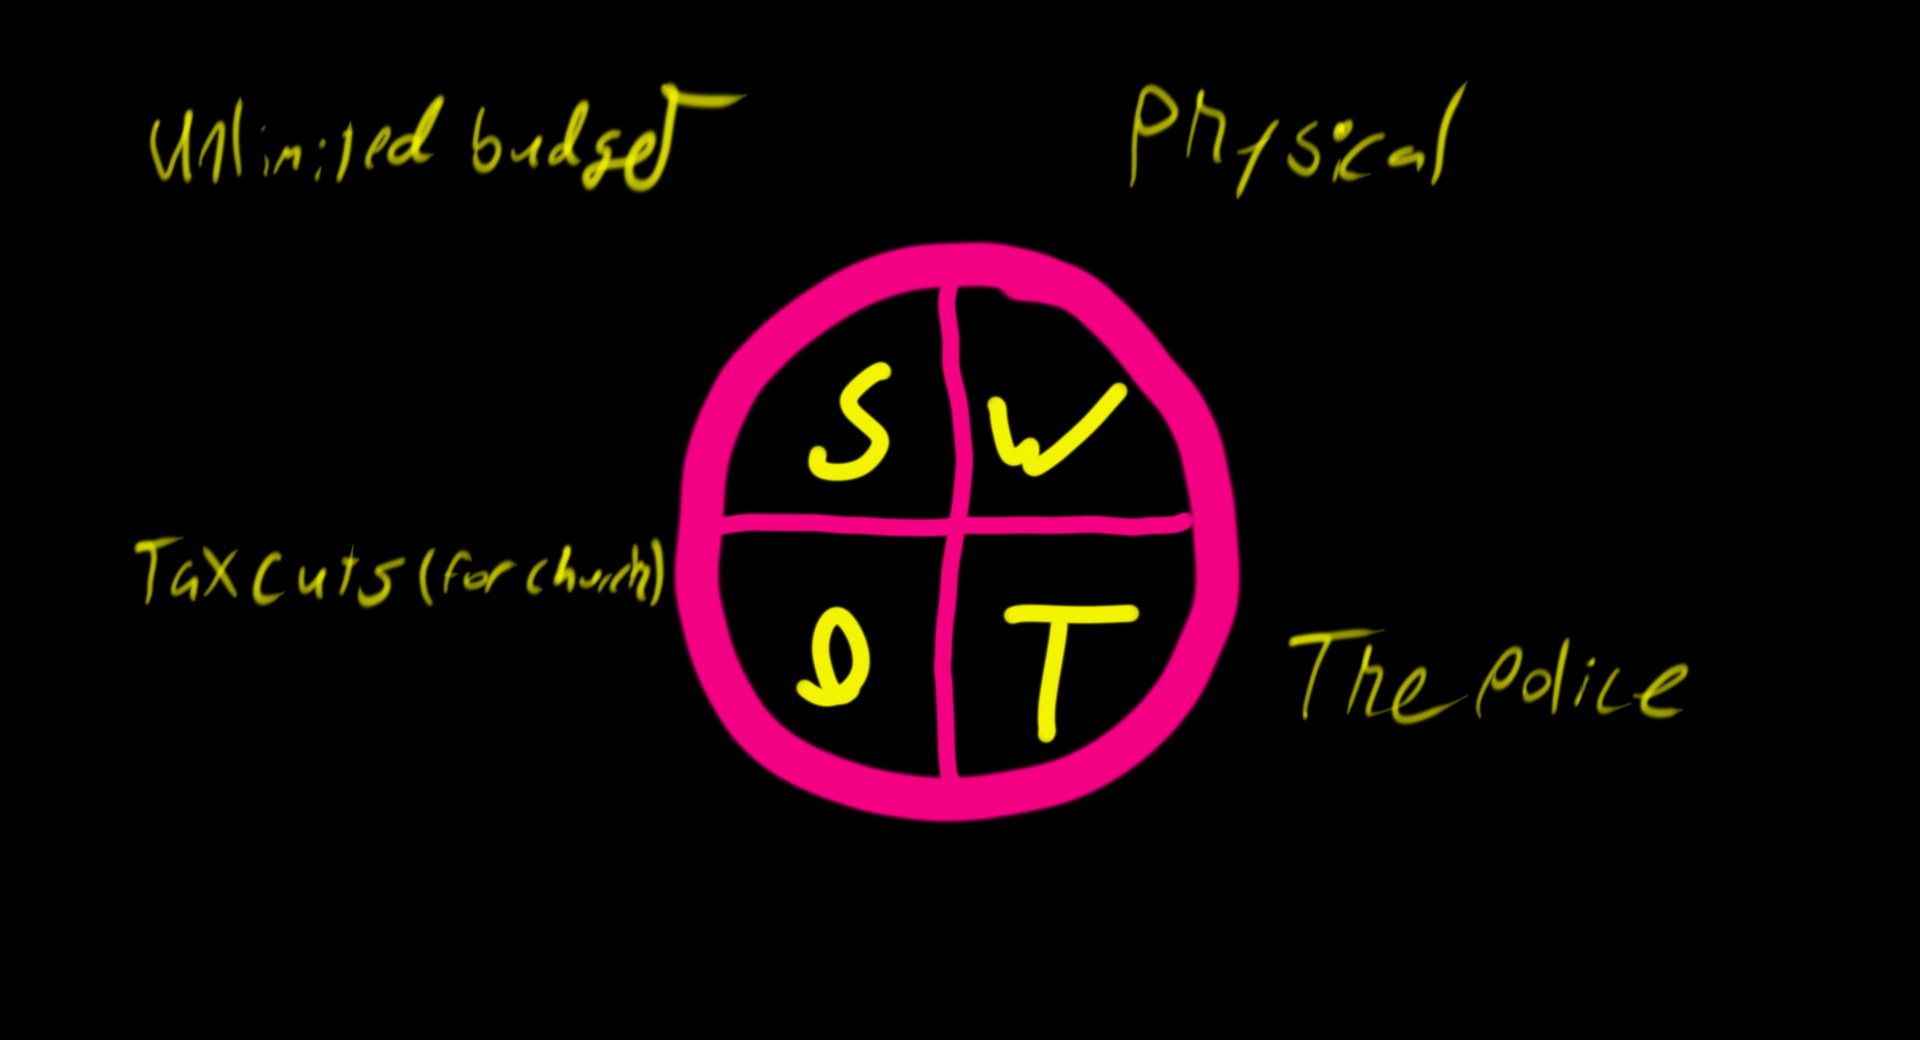 Unlimited budget
Physical
S
W
Tax cuts (for church)
O
T
The police